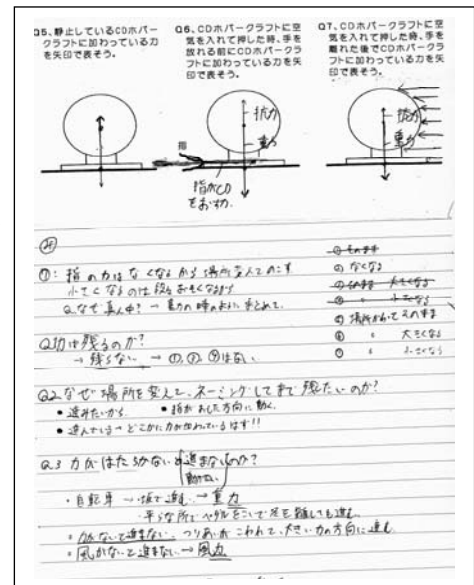 Q5、静止しているCDホバー
クラフトに加わっている力
を矢印で表そう。
Q6、CDホバークラフトに空
気を入れて押した時、手を
放れる前にCDホバークラ
フトに加わっている力を矢
印で表そう。
Q7、CDホバークラフトに空
気を入れて押した時、手を
離れた後でCDホバークラ
フトに加わっている力を矢
印で表そう。
抗力
重力
指
指がCD
をおす力
抗力
重力
①: 指の力はなくなるから場所変えてのこす
小さくなるのは段々おそくなるから
Q.なぜ真ん中? → 重力の時のようにまとめて。
そのまま
なくなる
大きくなる
小さくなる
場所かわってそのまま
〃 大きくなる
〃 小さくなる
Q1力は残るのか?
→ 残らない →
Q2.なぜ場所を変えて、ネーミングしてまで残したいのか?
• 進みたいから • 指がおした方向に動く。
• 進んでいる→どこかに力が加わっているはず!!
Q.3 力がはたらかないと進まないのか?
動かない
・自転車 → 坂で進む → 重力
平らな所でペダルをこいで足を離しても進む
・力がないと進まない つりあいがこわれて、大きい力の方向に進む
・風がないと進まない → 風力